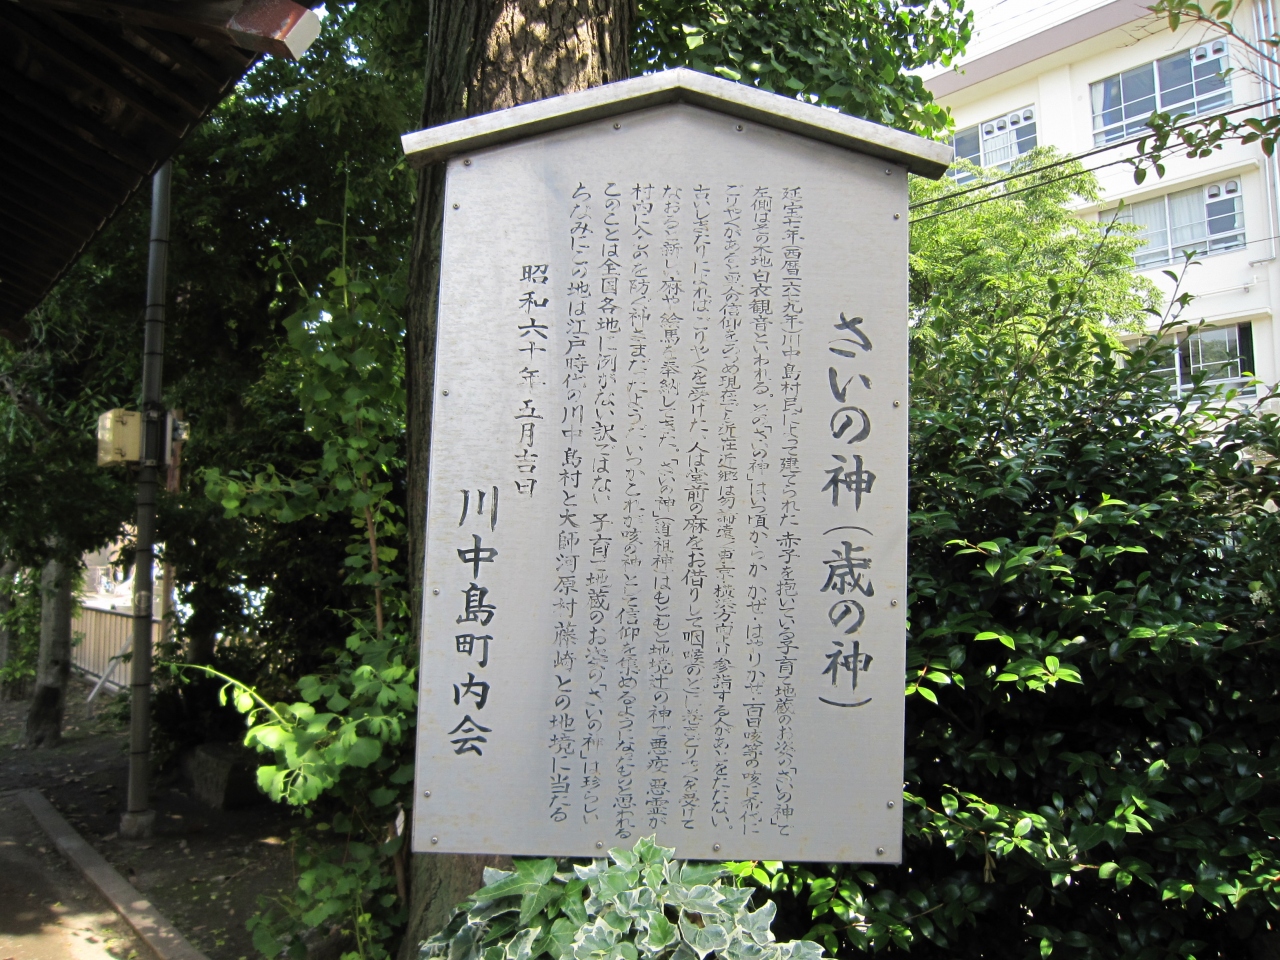 さいの神(歳の神)
延宝七年(西暦一六七九年)川中島村民によって建てられた赤子を抱いている子育て地蔵のお姿の「さいの神」で
左側はその本地白衣観音といわれる。この「さいの神」はいつ頃からか かぜ・はやりかぜ・百日咳等の咳に
ごりやくがあると の信仰をあつめ現在でも近在近郷は勿論遠く東京横浜方面より参詣する人があとをたたない。
古いしきたりによれば、ごりやくを受けた人は堂前の麻をお借りして咽喉のところに巻きごりやくを受けて
なおると新しい麻や絵馬を奉納してきた。「さいの神」(道祖神)はもともと地境辻の神で悪疫悪霊が
村内に入るのを防ぐ神さまだったようだ いつかこれが咳の神として信仰を集めるようになったものと思われる
このことは全国各地に例がない訳ではない 子育て地蔵のお姿の「さいの神」は珍らしい
ちなみにこの地は江戸時代の川中島村と大師河原村藤崎との地境に当たる
昭和六十年五月吉日
川中島町内会